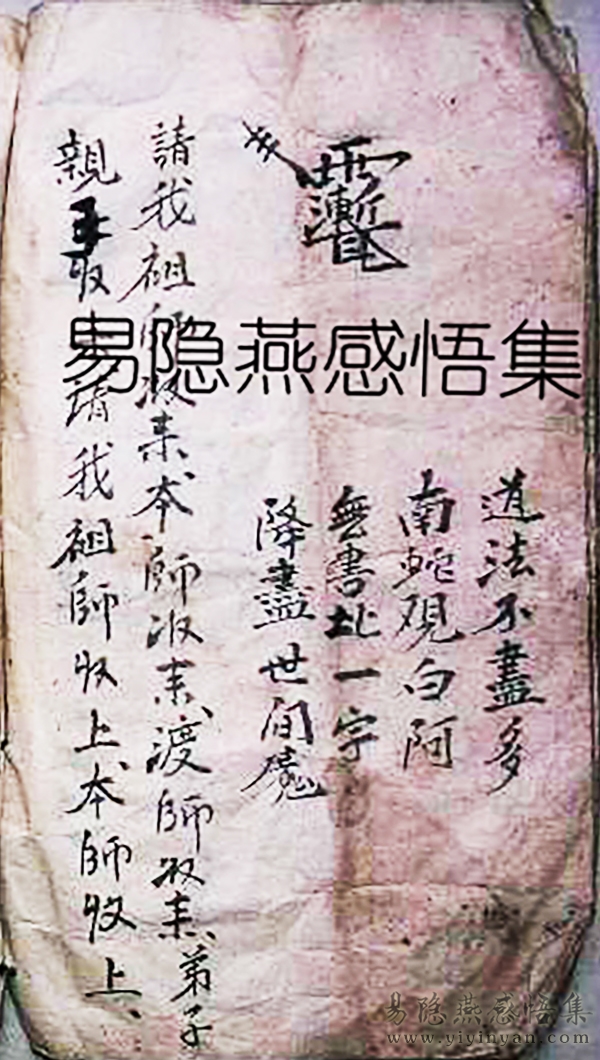 道法不盡多
南蛇覌白阿
無書此一字
降盡世间魔
請我祖師收来、本師收来、渡師收来、弟子
親收請我祖師收上、本師收上、
易隐燕感悟集
易隐燕感悟集
www.yiyinyan.com